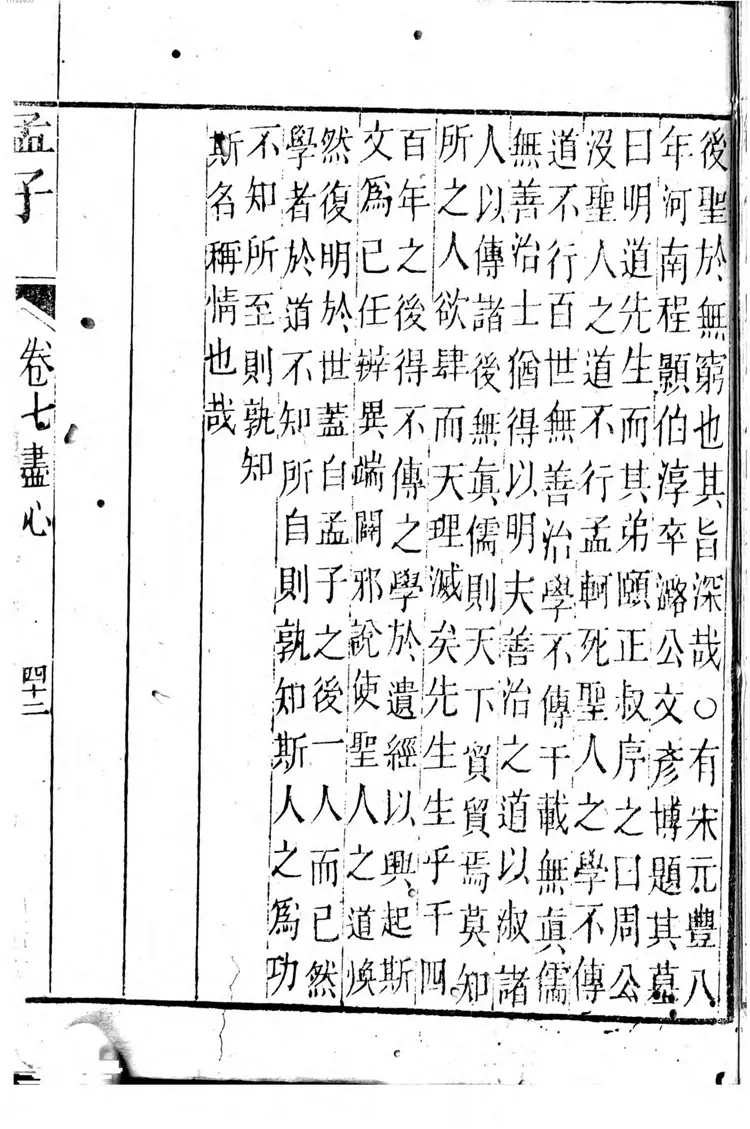 後聖於無窮也其旨深哉○有宋元豐八
年河南程顥伯淳卒潞公文彥博題其墓
曰明道先生而其弟頤正叔序之曰周公
沒聖人之道不行孟軻死聖人之學不傳
道不行百世無善治學不傳千載無眞儒
無善治士猶得以明夫善治之道以淑諸
人以傳諸後無眞儒則天下貿貿焉莫知
所之人欲肆而天理滅矣先生生乎千四
百年之後得不傳之學於遺經以興起斯
文爲己任辨異端闢邪說使聖人之道煥
然復明於世蓋自孟子之後一人而已然
學者於道不知所自則孰知斯人之爲功
不知所至則孰知
斯名稱情也哉
孟子 卷七盡心 四十二